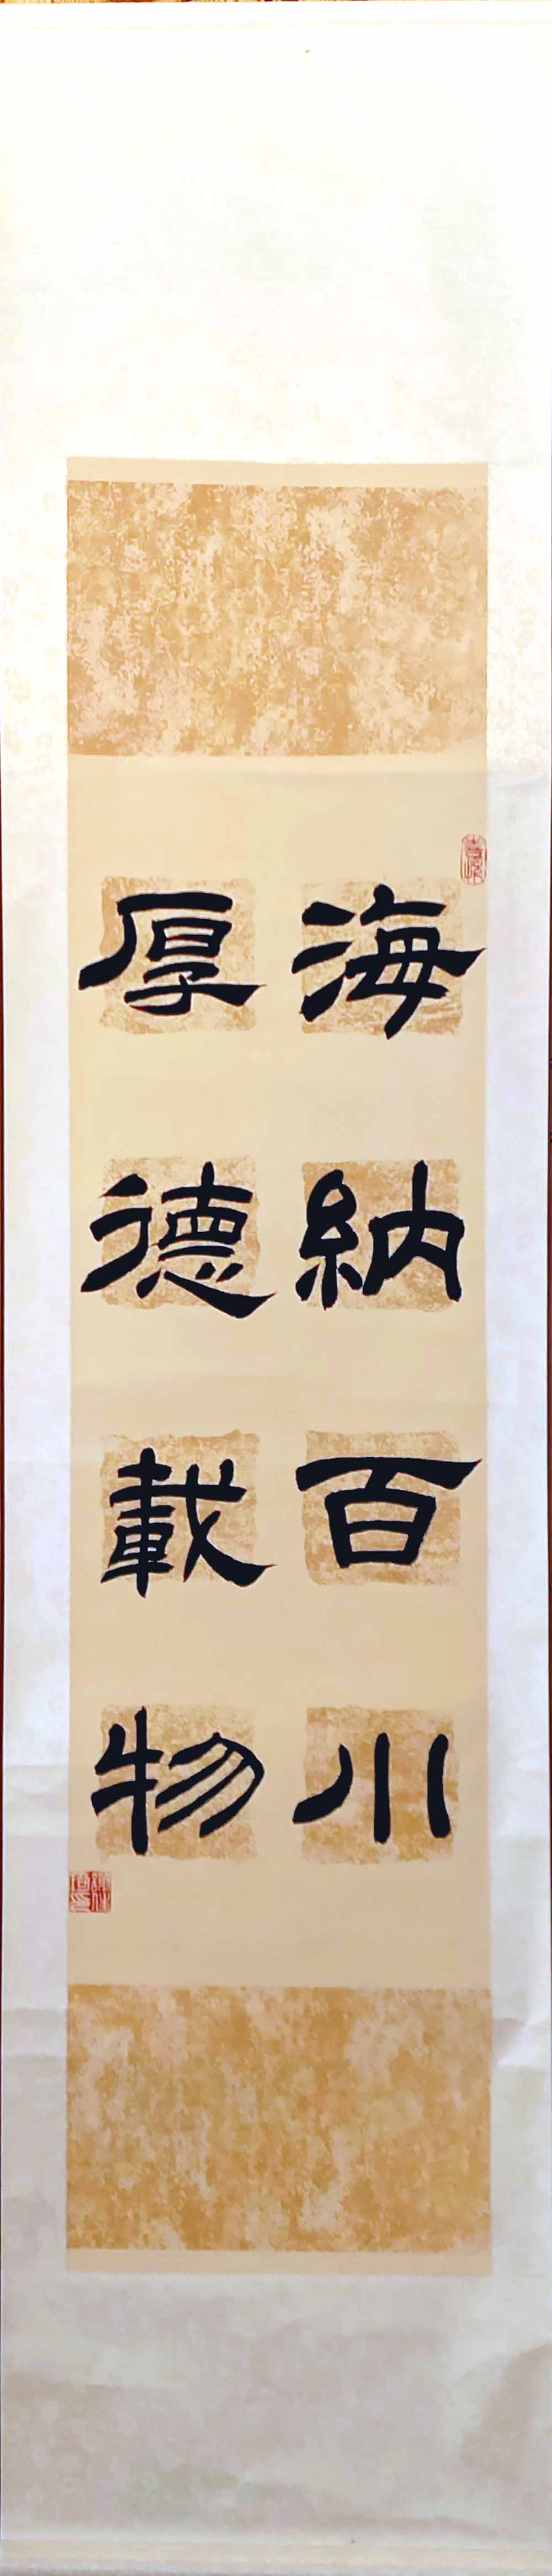 海納百川
厚德載物